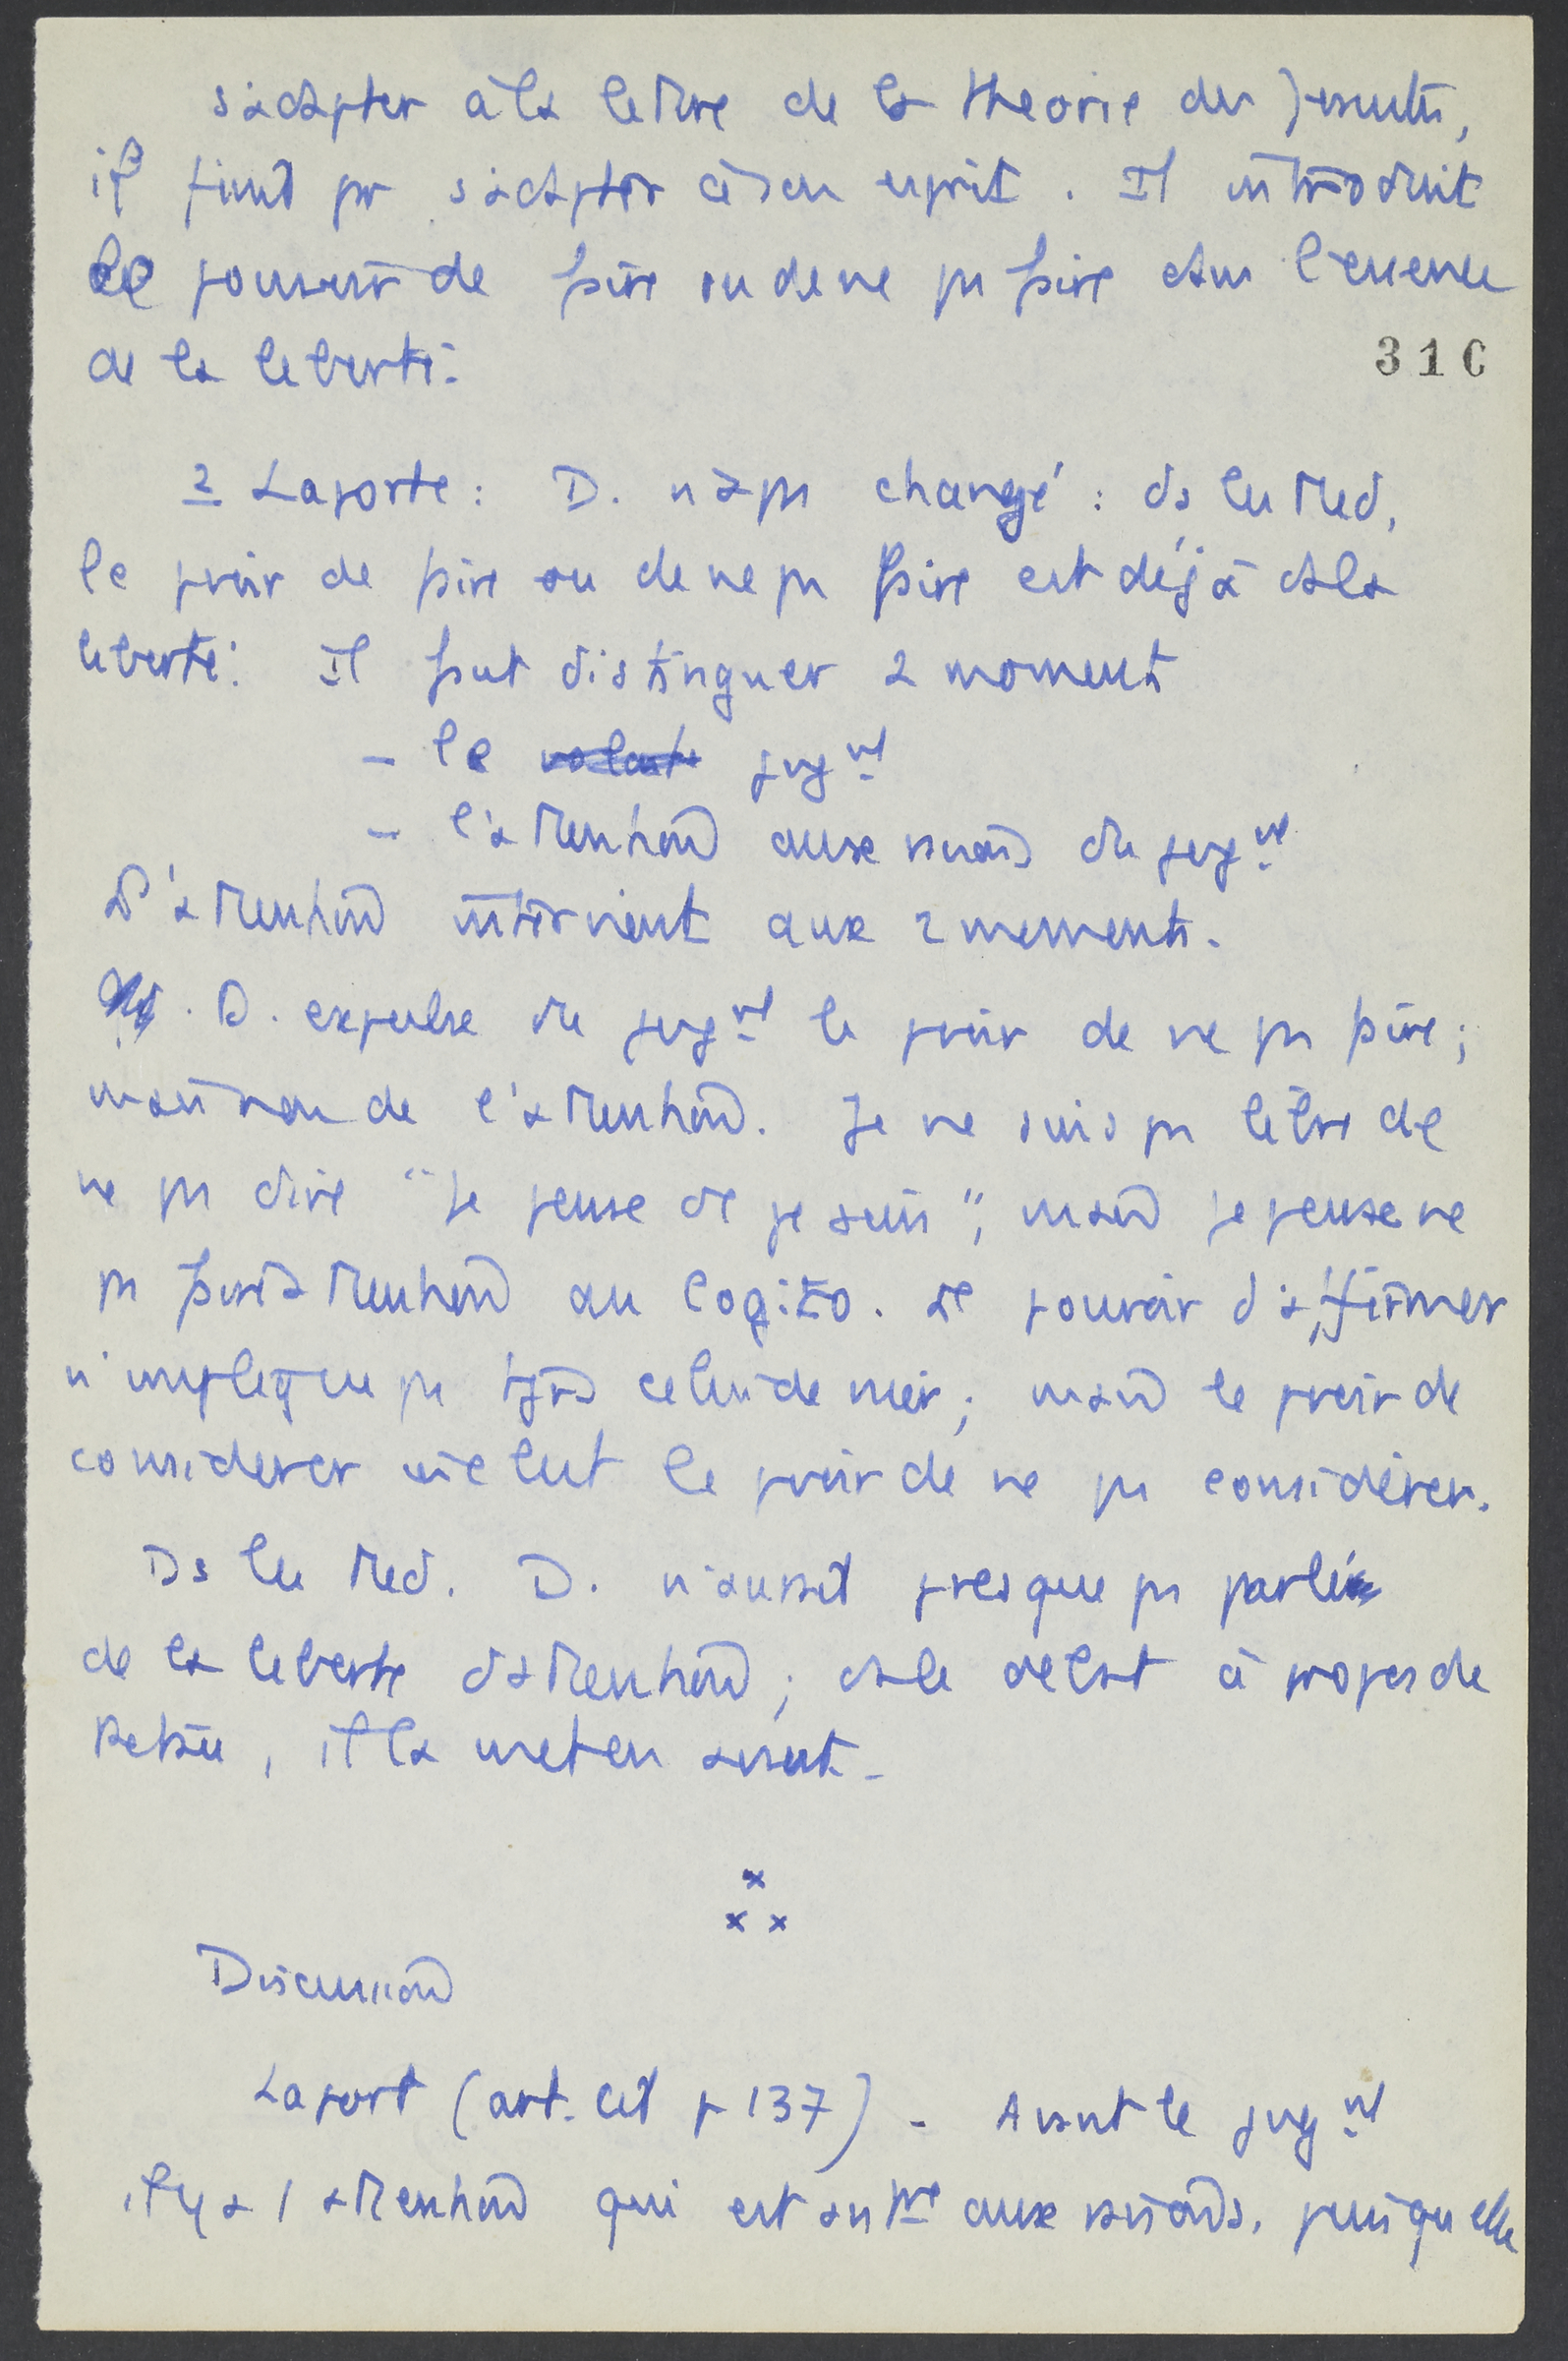 s'adapter à la lettre de la théorie des Jésuites,
il finit par s'adapter à son esprit. Il introduit
le pouvoir de faire ou de ne pas faire dans l'essence
de la liberté.
310
2 Laporte : D. n'a pas changé : ds les Méd.
le pvoir de faire ou de ne pas faire est déjà ds la
liberté. Il faut distinguer 2 moments
- le volonté jugmt
- l'attention aux raisons du jugmt
L'attention intervient aux 2 moments.
D. expulse du jugmt le pvoir de ne pas faire ;
mais non de l'attention. Je ne suis pas libre de
ne pas dire "je pense dc je suis", mais je peux ne
pas faire attention au Cogito. Le pouvoir d'affirmer
n'implique pas tjrs celui de nier ; mais le pvoir de
considérer inclut le pvoir de ne pas considérer.
Ds les Méd. D. n'aurait presque pas parlé
de la liberté d'attention ; ds le débat à propos de
Petau, il la met en avant.
x
x x
Discussion
Laport (art. cit p 137) - Avant le jugmt
il y a 1 attention qui est antre aux raisons, puisqu'elle